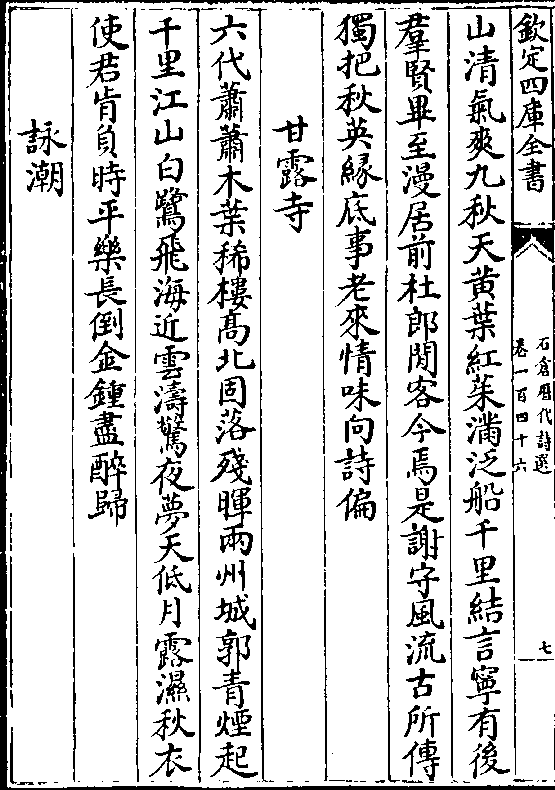 欽定四庫全書
石倉歷代詩選
卷一百四十六
七
山清氣爽九秋天黄葉紅茱滿泛船千里結言寧有後
羣賢畢至漫居前杜郎閒客今焉是謝守風流古所傳
獨把秋英縁底事老來情味向詩偏
甘露寺
六代蕭蕭木葉稀樓髙北固落殘暉兩州城郭青煙起
千里江山白鷺飛海近雲濤驚夜夢天低月露濕秋衣
使君肯負時平樂長倒金鍾盡醉歸
詠潮